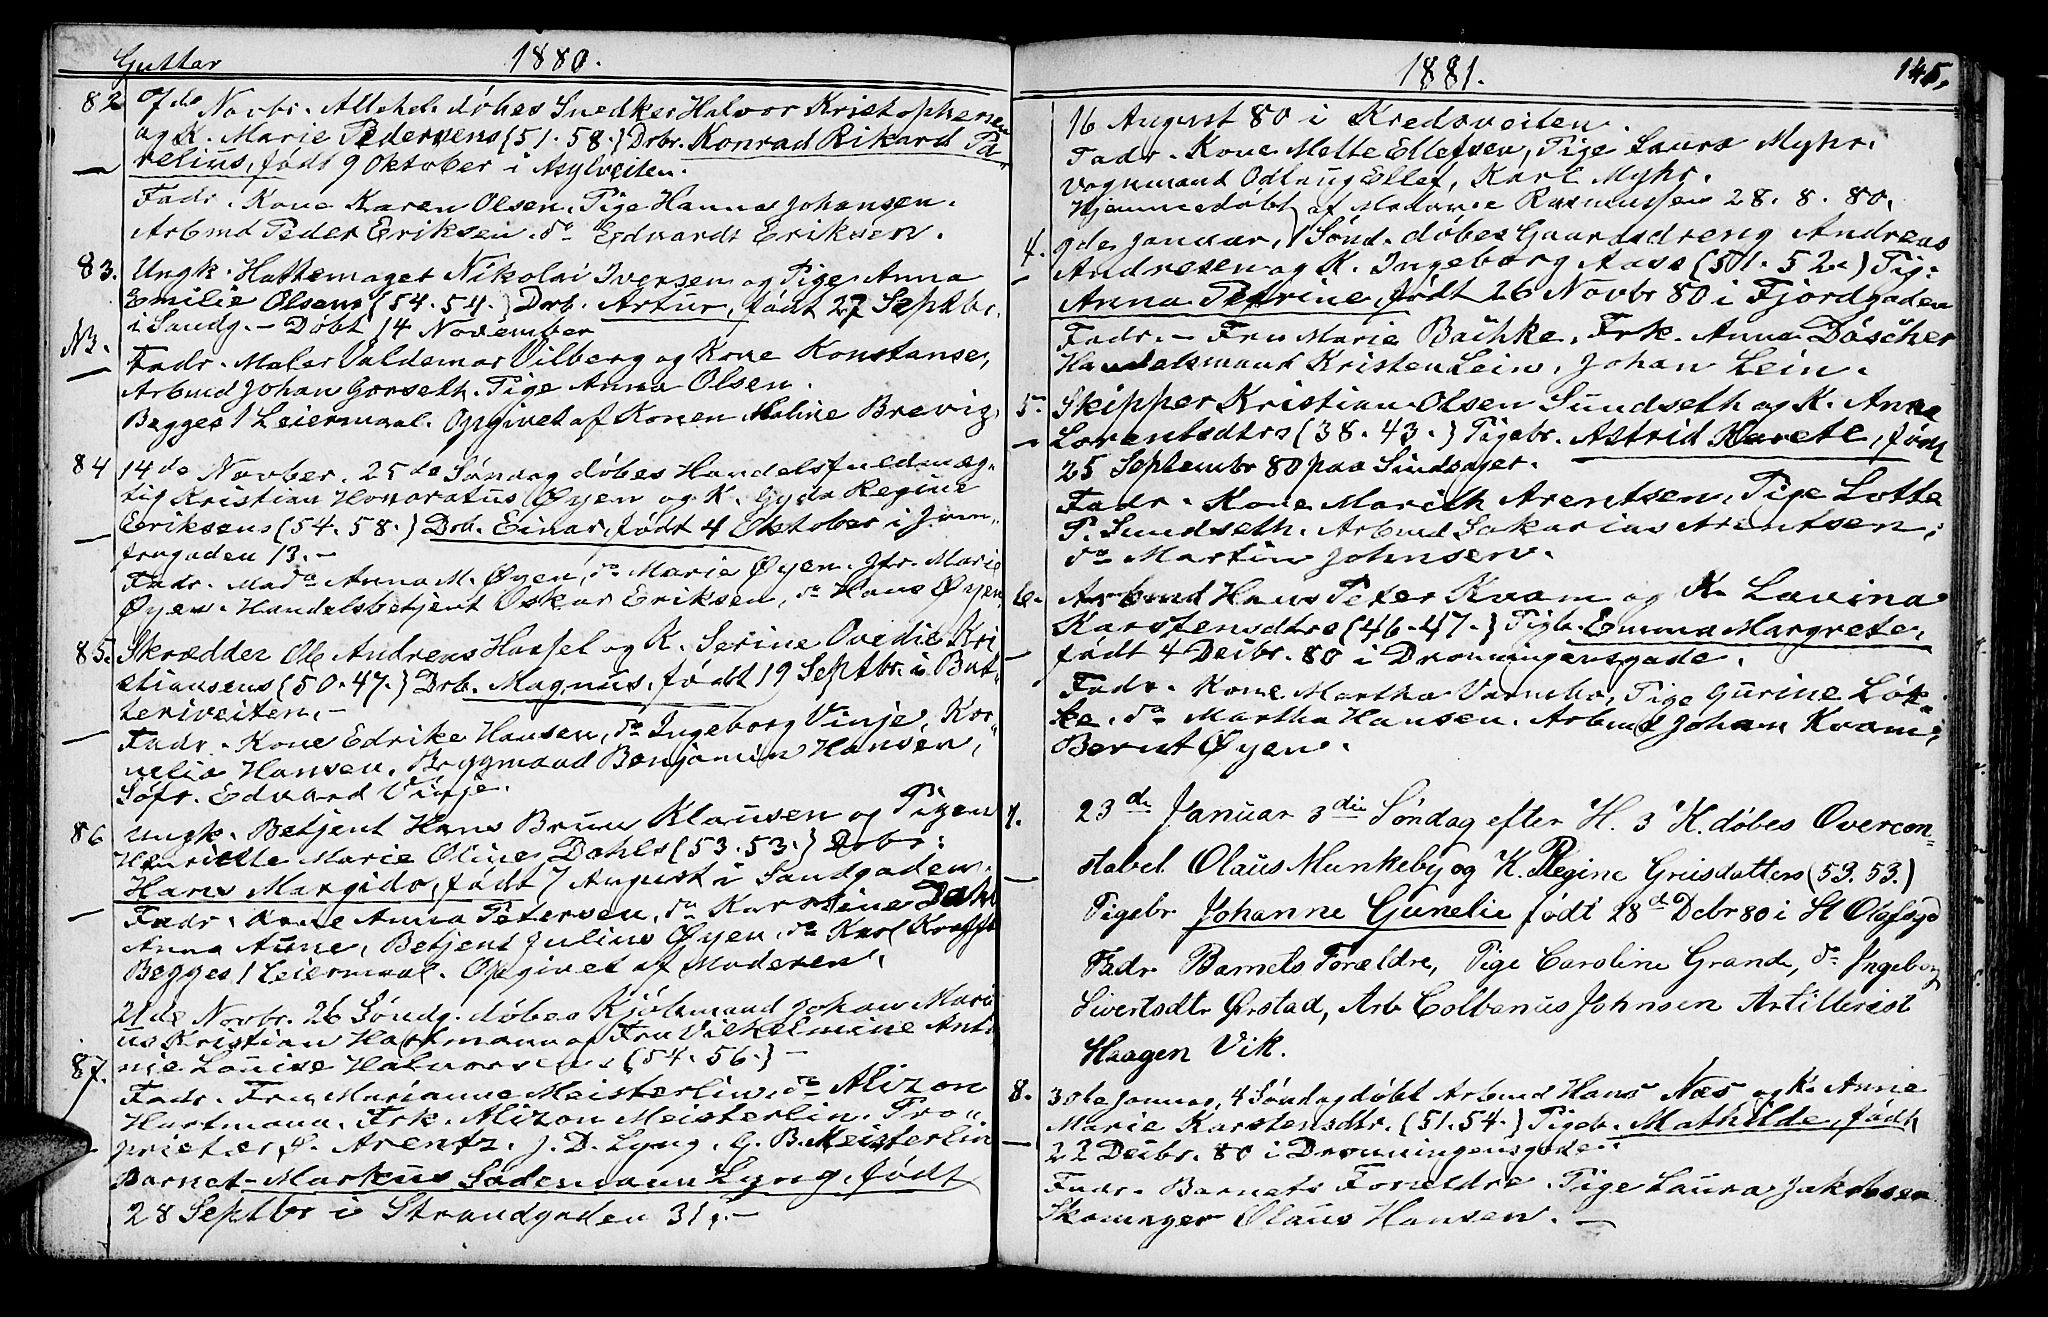 Guttar 1880.
82 7de Novbr. Allehel. døbes Snedker Halvor Kristophersen
og K. Marie Pedersens (51. 58.) Drbr. Konrad Rikard Pa-
relius, født 9 Oktober i Asylveiten.
Fadr. Kone Karen Olsen, Pige Hanna Johansen.
Arbmd Peder Eriksen. do Edvardt Eriksen.
83. Ungk. Hattemager Nikolai Iversen og Pige Anna
Emilie Olsens (54. 54.) Drb. Artur, født 27 Septbr.
i Sandg. – Døbt 14 November
N3. Fadr. Maler Valdemar Vilberg og Kone Konstanse,
Arbmd Johan Gorseth. Pige Anna Olsen.
Begges 1 Leiermaal. Opgivet af Konen Maline Brevig.
84 14de Novber. 25de Søndag døbes Handelsfuldmæg-
tig Kristian Honoratus Øyen og K. Gyda Regine
Eeriksens (54. 58.) Drb. Einar, født 4 Oktober i Jom-
frugaden 13. –
Fadr. Mado Anna M. Øyen, do Marie Øyen. Jfr. Marie
Øyen. Handelsbetjent Oskar Eriksen, do Hans Øyen
85. Skrædder Ole Andreas Hassel og K. Serine Ovedie Kri
stiansens (50. 47.) Drb. Magnus, født 19 Septbr. i Bat-
teriveiten. –
Fadr. Kone Edrike Hansen, do Ingeborg Vinje, Kor-
nelia Hansen, Brygmand Benjamin Hansen,
Søfr. Edvard Vinje.
86 Ungk. Betjent Hans Bruun Klausen og Pigen
Henriette Marie Oline Dahls (53. 53.) Drbr:
Hans Margido, født 7 August i Sandgaden.
Fadr. Kone Anna Petersen, do Karoline Dahl
Anna Aune, Betjent Julius Øyen, do Karl
Begges 1 Leiermaal. Opgivet af Moderen.
21de Novbr. 26 Søndg. døbes Kjøbmand Johan Mari
us Kristian Hartmann og Fru Vilhelmine Anto
87. nie Louise Halvorsens (54. 56.) –
Fadr. Fru Marianne Meisterlin, do Alizon
Hartmann, Frk. Alizon Meisterlin. Pro-
prietær P. Arentz. J. D. Lyng, G. B. Meisterlin
Barnet – Markus Sodemann Lyng, født
28 Septbr i Strandgaden 31. –
1881. 145.
16 August 80 i Kredsveiten.
Fadr. Kone Mette Ellefsen, Pige Laura Myhr.
Vognmand Odlaug Ellef, Karl Myhr.
Hjemmedøbt af Madame Rasmussen 28. 8. 80.
4. 9de Januar, 1 Sønd. døbes Gaardsdreng Andreas
Andresen og K. Ingeborg Aass (51. 52.) Pig:
Anna Petrine, født 26 Novbr 80 i Fjordgaden
Fadr. – Fru Marie Bachke, Frk. Anna Döscher
Handelsmand Kristen Lein, Johan Lein.
5. Skipper Kristian Olsen Sundseth og K. Anne
Lorentsdtrs (38. 43.) Pigebr. Astrid Marete, født
25 Septembr 80 paa Sindsaget.
Fadr. Kone Marith Arentsen, Pige Lotte
P. Sundseth. Arbmd Sakarias Arentsen,
do Martin Johnsen.
6. Arbmd Hans Peter Kvam og K. Lavina
Karstensdtrs (46. 47.) Pigb. Emma Margrete,
født 4 Decbr. 80 i Dronningensgade.
Fadr. Kone Martha Varmbo, Pige Gurine Løk-
ke, do Martha Hansen. Arbmd Johan Kvam,
Bernt Øyen.
7. 23de Januar 3die Søndag efter H. 3 K. døbes Overcon-
stabel Olaus Munkeby og K. Regine Greisdatters (53. 53.)
Pigebr Johanne Gunelie født 28d Debr 80 i St Olafsgd
Fadr Barnets Forældre, Pige Caroline Grande, do Ingeborg
Sivertsdtr Ørstad, Arb Colbanus Johnsen Artillerist
Haagen Vik.
8. 30te Januar, 4 Søndag døbt Arbmd Hans Næs og K. Anne
Marie Karstensdtr. (51. 54.) Pigeb. Mathilde, født
22 Decbr. 80 i Dronningensgade
Fadr. Barnets Forældre. Pige Laura Jakobsen
Skomager Olaus Hansen. –